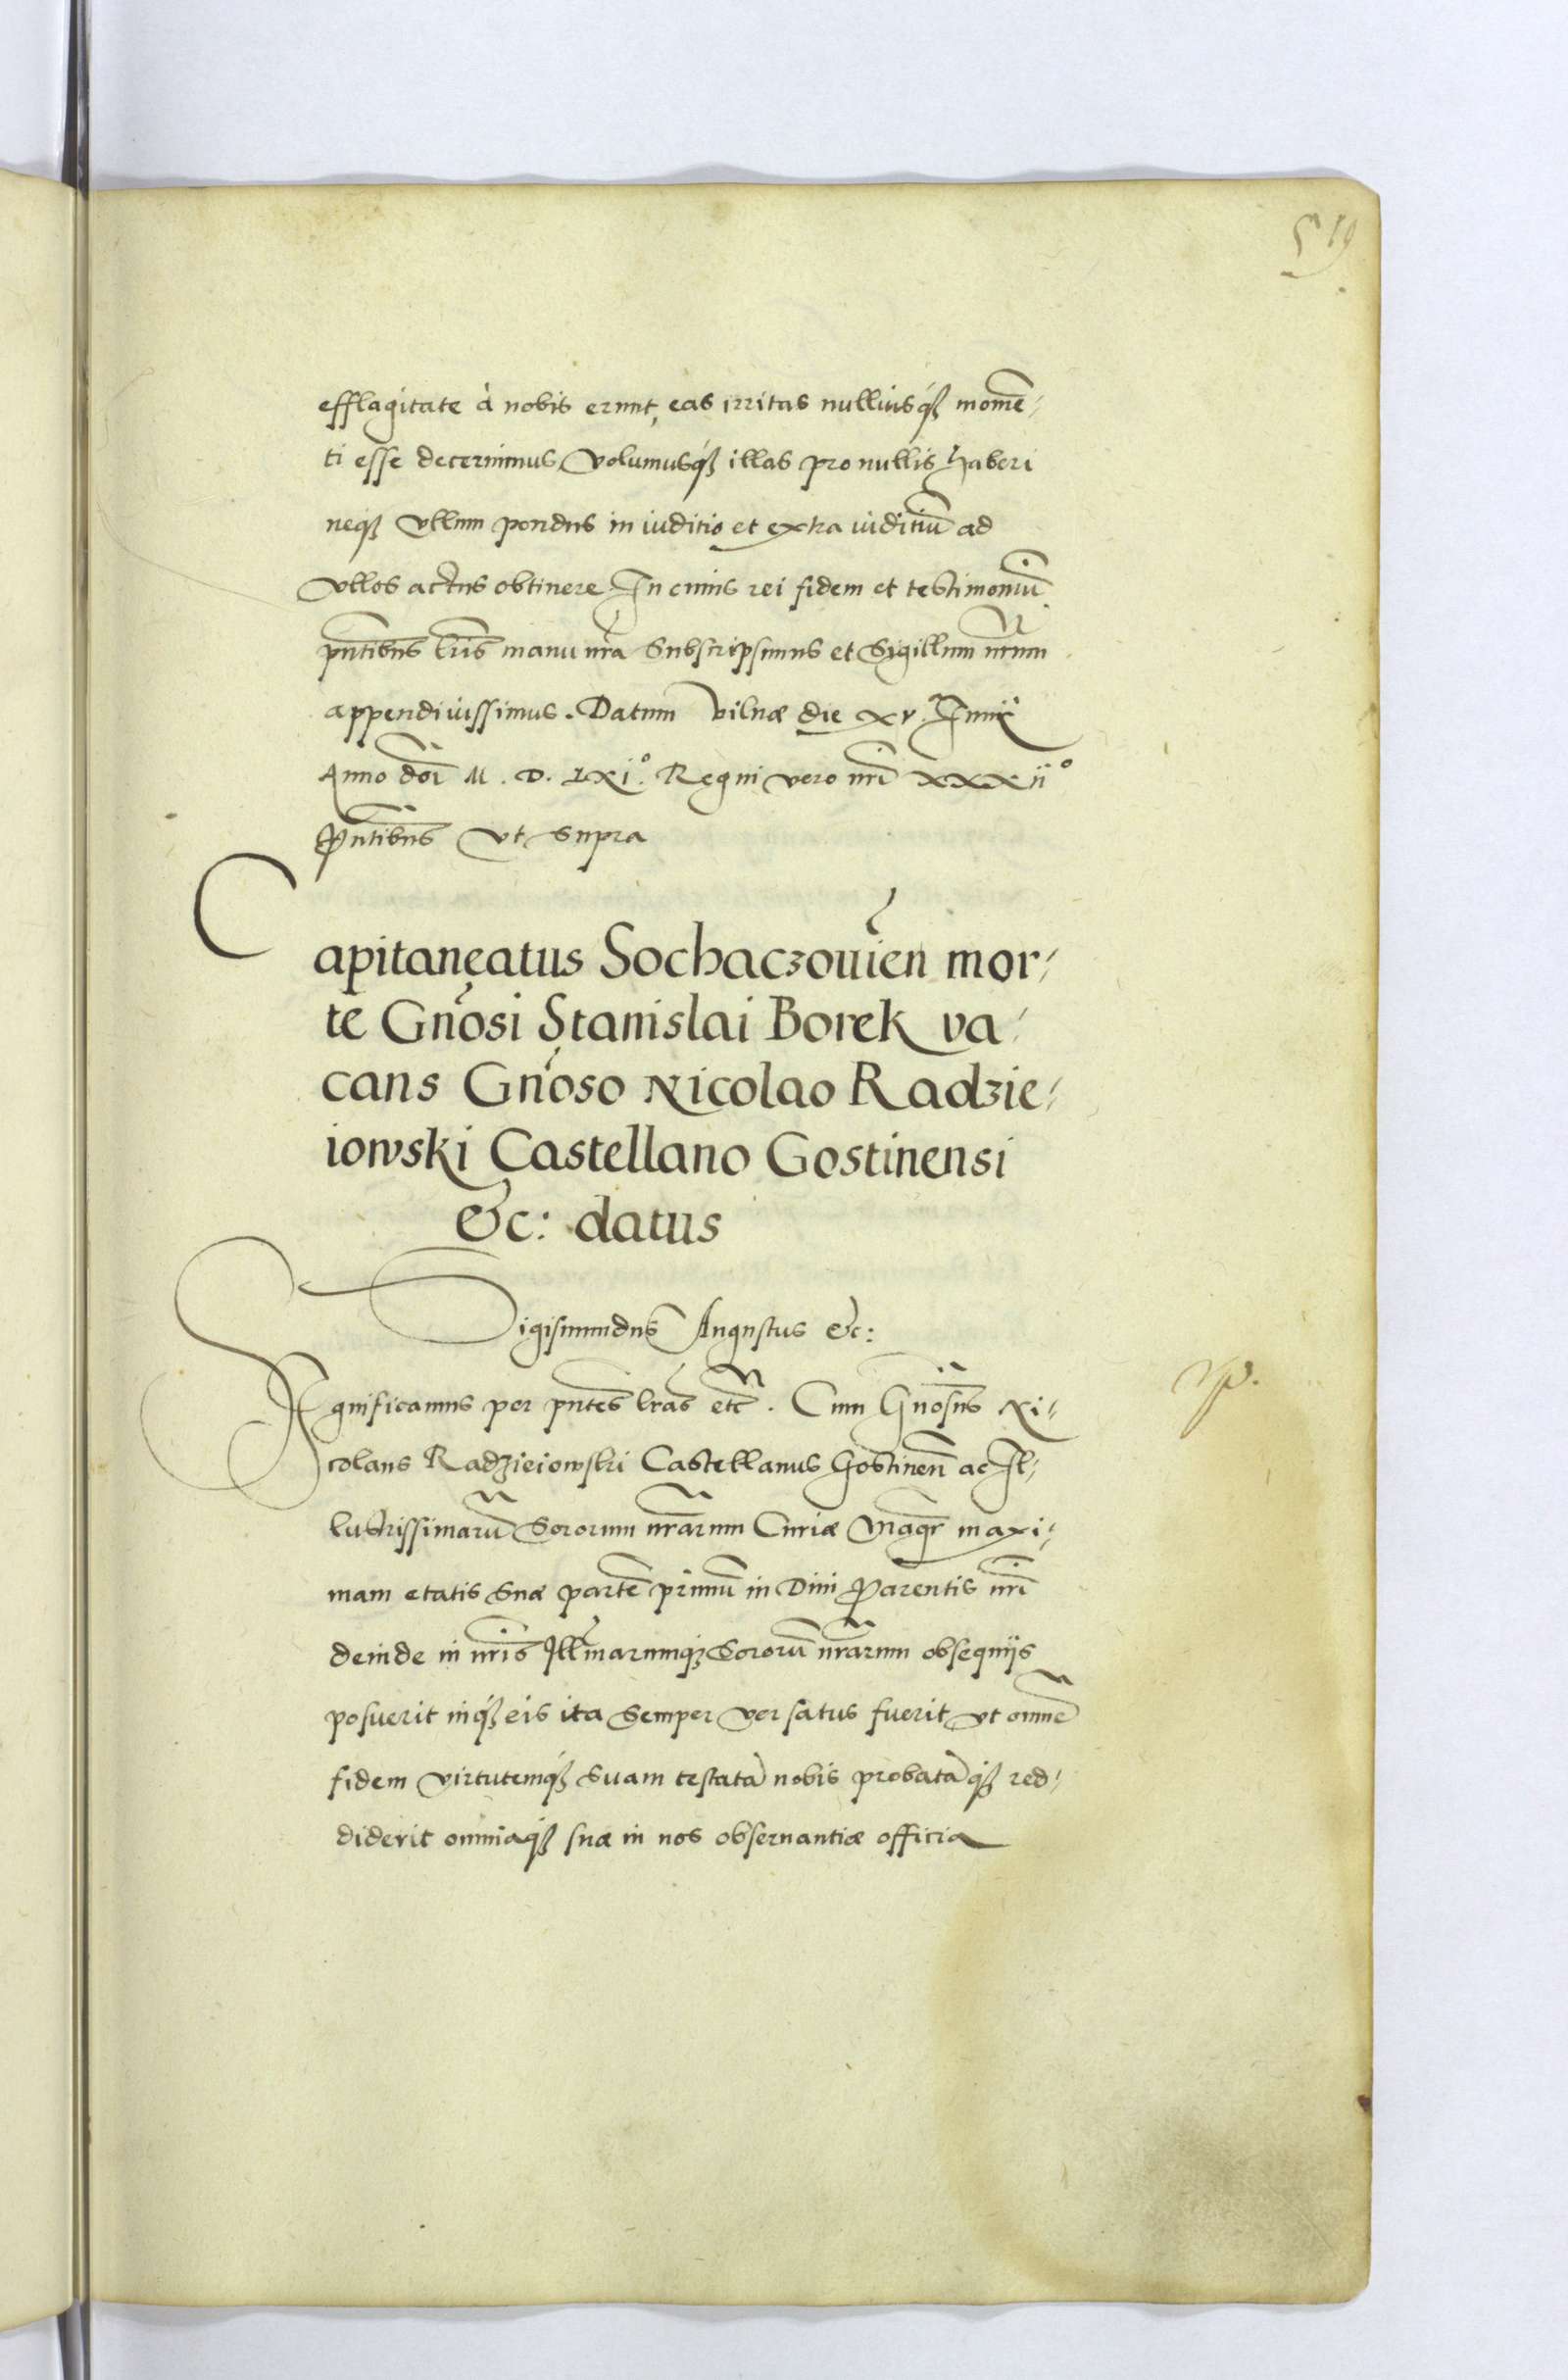 519
efflagitate à nobis erunt, eas irritas nulliusq́ʒ momē-
ti esse decernimus, Volumusq́ʒ illas pro nullis haberi
neqʒ vllum pondus in iuditio et extra iuditiū ad
vllos actus obtinere. In cuius rei fidem et testimoniū
pn̄tibus lr̄is manu nr̄a Subscripsimus et Sigillum nr̄um
appendi iussimus. Datum Vilnæ die xv. Iunij
Anno dn̄i M. D. LXi.º Regni vero nr̄i xxxiiº
Pn̄tibus vt supra
Capitaneatus Sochaczouien̄ mor-
te Gn̄osi Stanislai Borek va-
cans Gn̄oso Nicolao Radzie-
iowski Castellano Gostinensi
&c: datus
Sigismundus Augustus &c:
Significamus per pn̄tes lr̄as etc̄. Cum Gn̄osus Ni-
colaus Radzieiowski Castellanus Gostinen̄ ac Il-
lustrissimarū Sororum nr̄arum Curiæ Magr̄ maxi-
mam etatis suæ partē primū in Diui Parentis nr̄i
deinde in nr̄is Ill̄marumqʒ Sororū nr̄arum obsequijs
posuerit inq́ʒ eis ita semper versatus fuerit vt omnē
fidem virtutemq́ʒ suam testatā nobis probatāq́ʒ red-
diderit omniaq́ʒ suæ in nos obseruantiæ officia